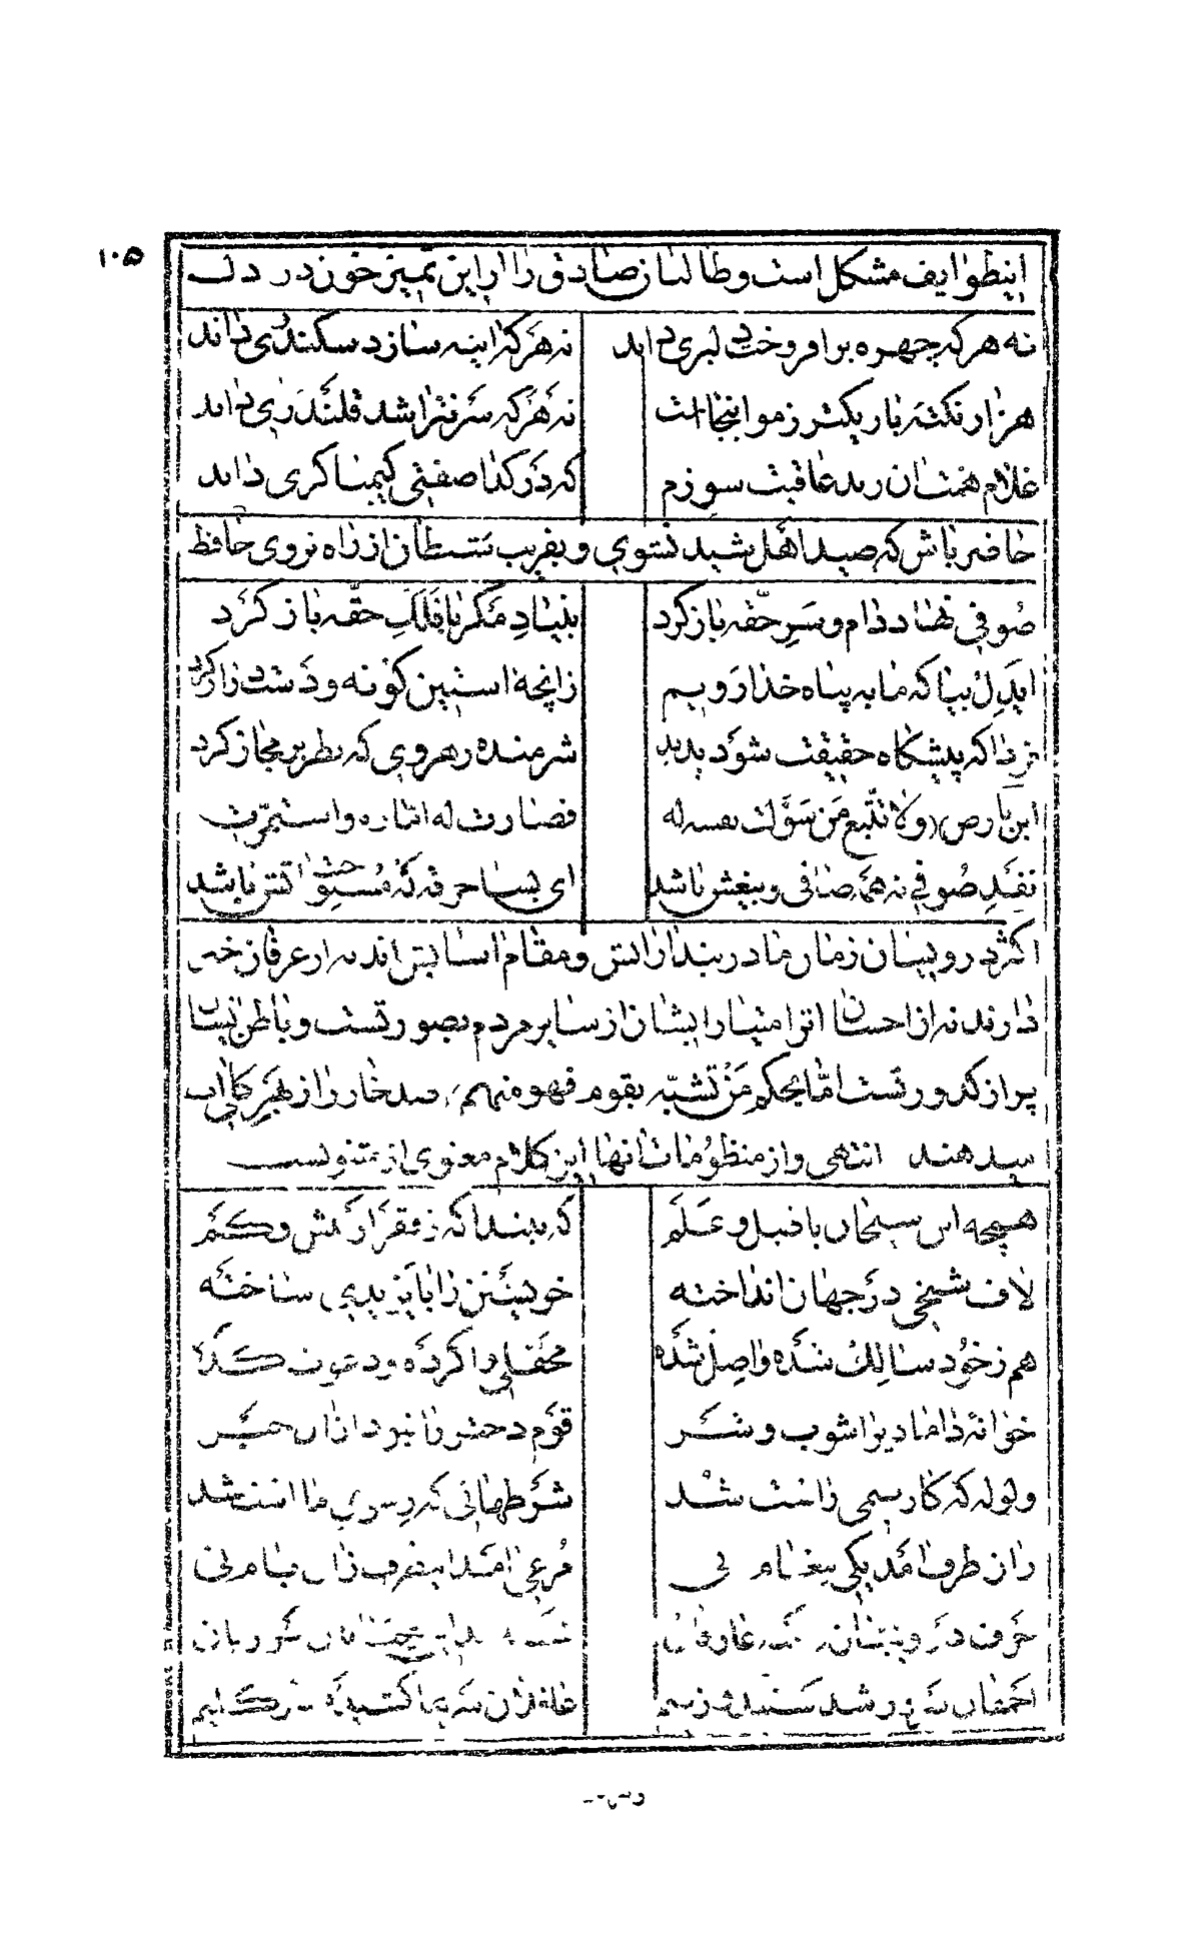 ۱۰۵
اینطوایف مشکل است و طالبان صادق را از این تمیز خون در دل
نه هر که چهره برافروخت دلبری داند نه هر که اینه سازد سکندری داند
هزار نکته باریکتر ز مو اینجاست نه هر که سر نتراشد قلندری داند
غلام همت ان رند عاقبت سوزم که در گدا صفتی کیمیاگری داند
حاضر باش که صید اهل شید نشوی و بفریب شیطان از راه نروی حافظ
صوفی نهاد دام و سر حقه باز کرد بنیاد مکر با فلک حقه باز کرد
ایدل بیا که ما به پناه خدا رویم زانچه استین کوته و دست دراز کرد
فردا که پیشگاه حقیقت شود پدید شرمنده رهروی که نظر بر مجاز کرد
ابن فارض ولا تتبع من سولت نفسه له فصارت له اماره واستمرت
نقد صوفی نه همه صافی و بیغش باشد ای بسا خرقه که مستوجب اتش باشد
اکثر درویشان زمان ما در بند ارایش و مقام اسایش اند نه از عرفان خبر
دارند نه از احسان اثر امتیاز ایشان از سایر مردم بصورتست و باطن ایشان
پر از کدورتست اما بحکم من تشبه بقوم فهو منهم صد خار را از بهر کلی اب
میدهند انتهی و از منظومات انها این کلام معنوی از مثنویست
همچه این شیخان با طبل و علم که بینداکه ز فقر ار بیش و کم
لاف شیخی در جهان انداخته خویشتن را بایزیدی ساخته
هم ز خود سالک شده واصل شده محفلی وا کرده در دعوت کده
خوانه داماد پر اشوب و شر قوم دختر را نبود از ان خبر
ولوله که کار نیمی راست شد شرطهائی که ز سوی ما است شد
زان طرف امد یکی پیغام نی مرغی امد اینطرف زان بام نی
حرف درویشان